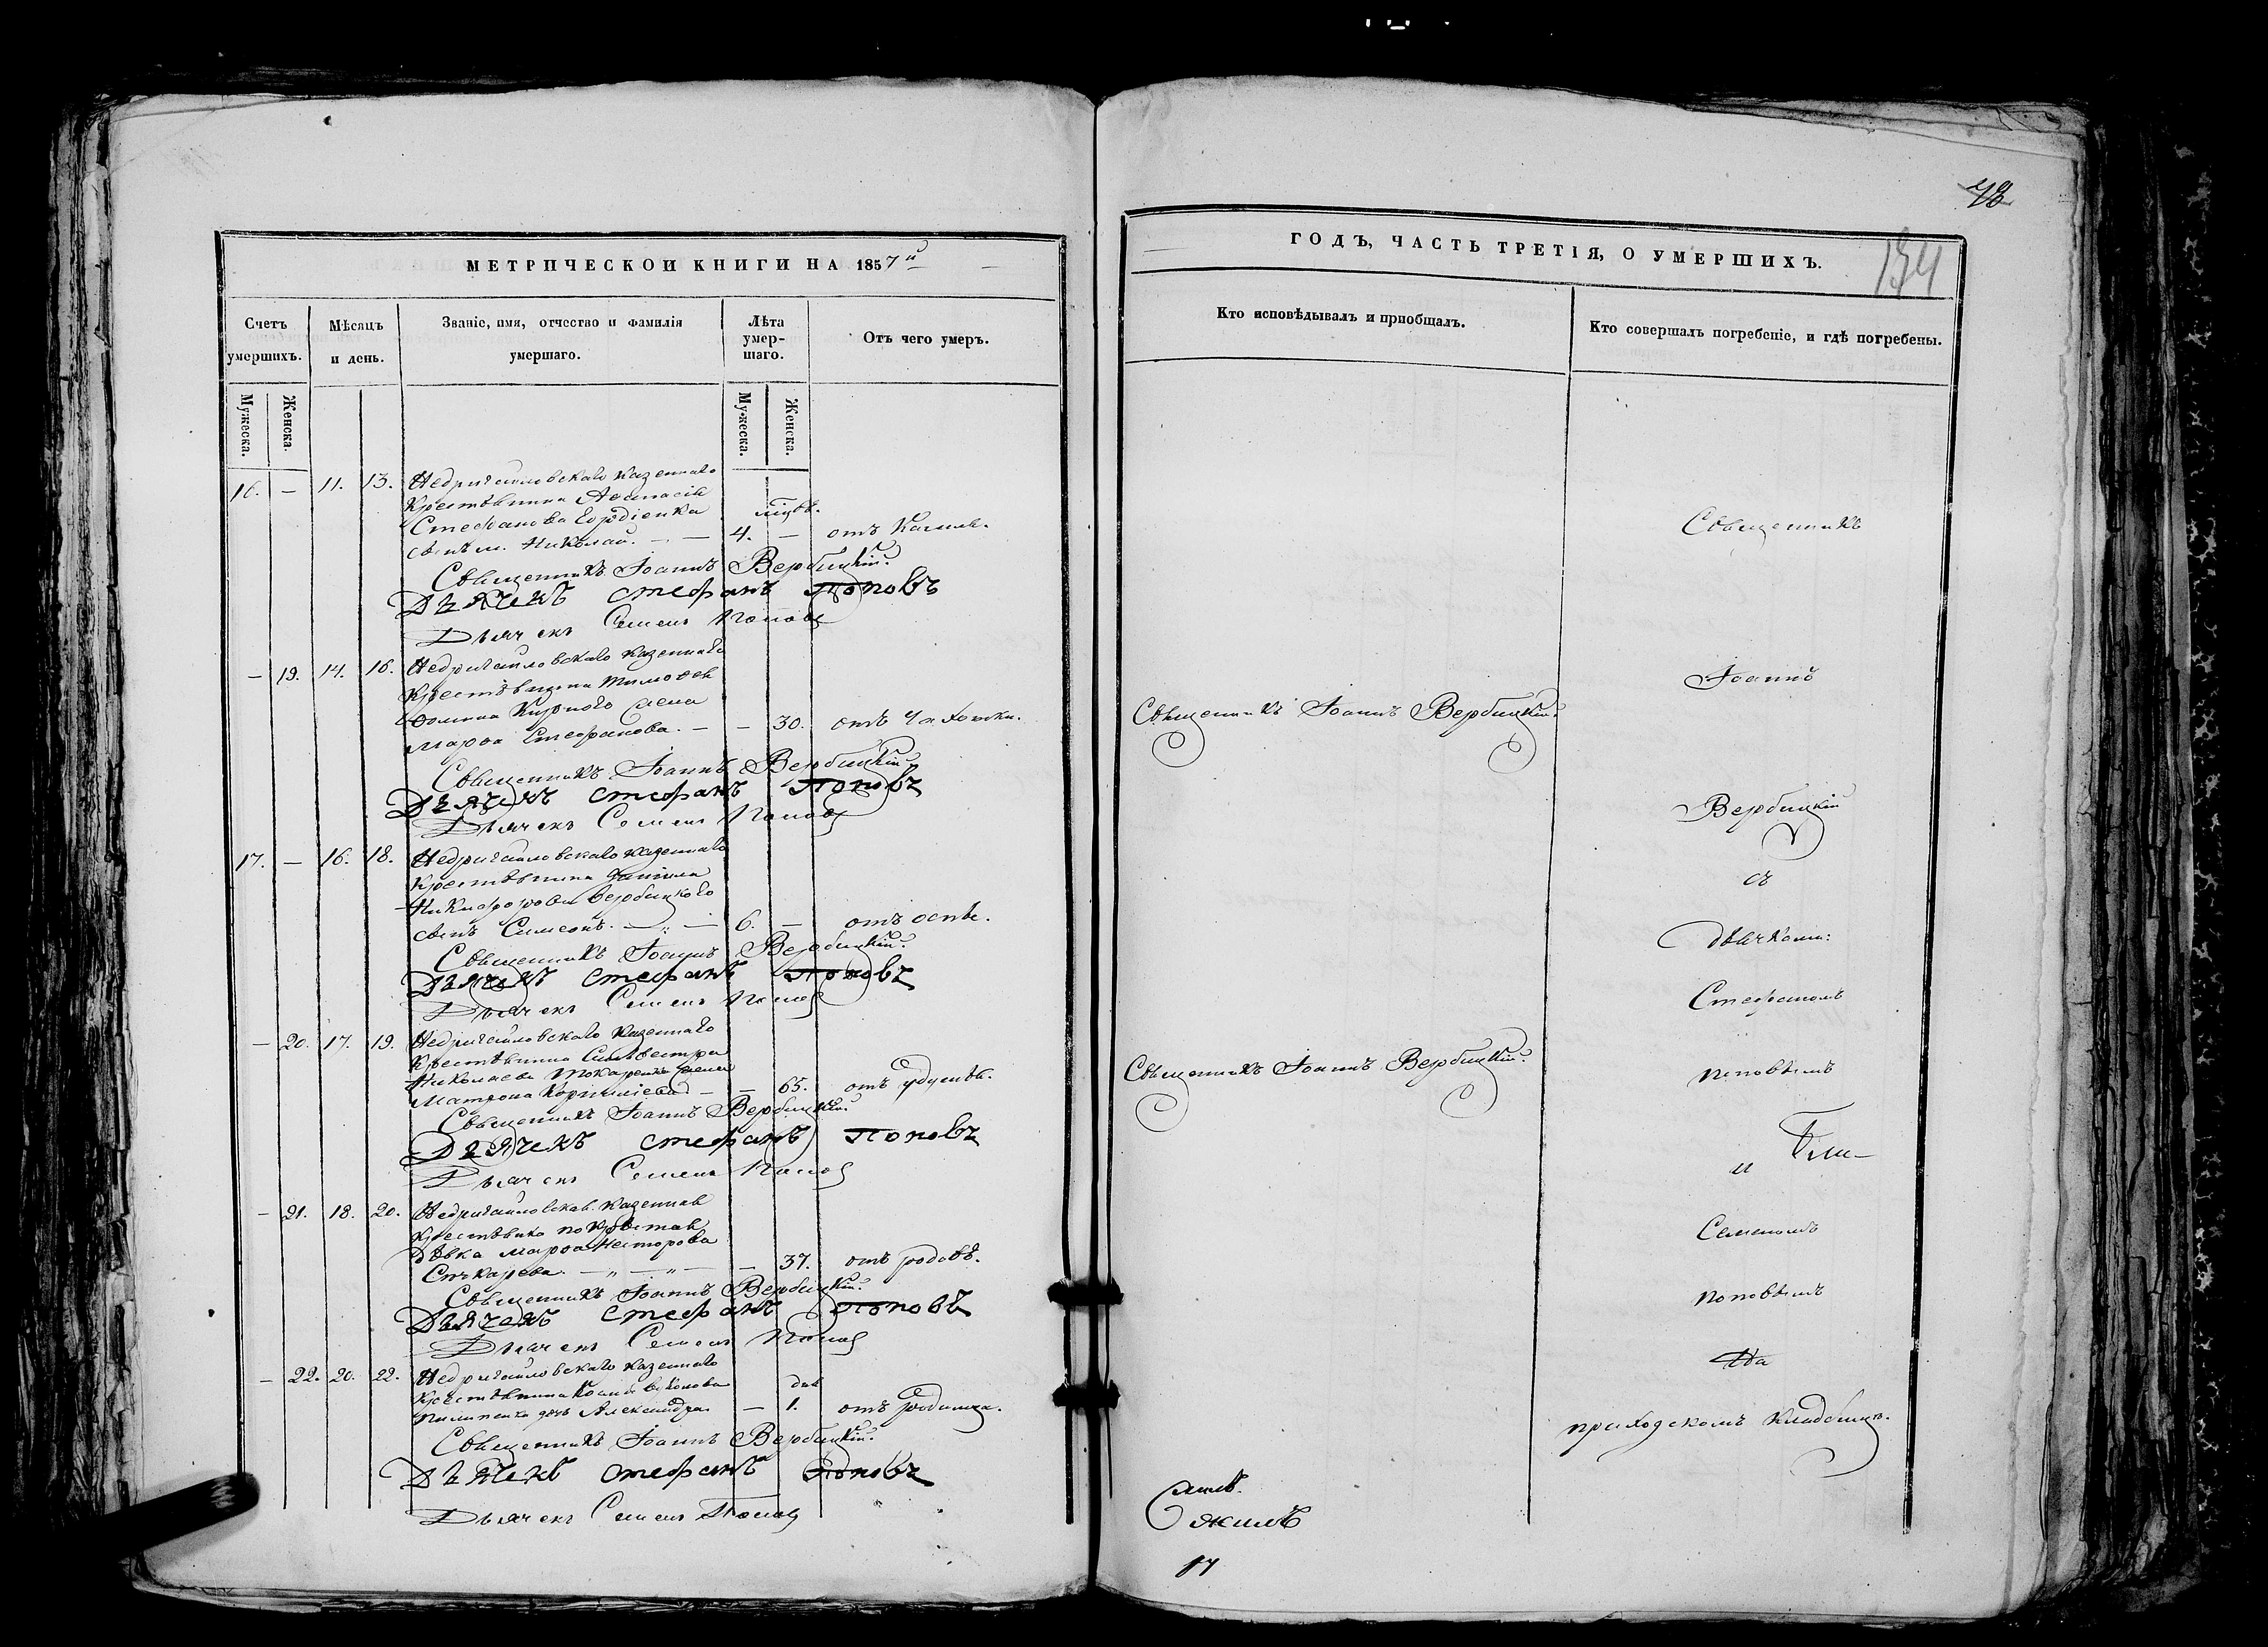 МЕТРИЧЕСКОЙ КНИГИ НА 1857й
Счетъ умершихъ.
Мѣсяцъ и день.
Званіе, имя, отчество и фамилія умершаго.
Лѣта умер-
шаго.
Отъ чего умеръ.
Мужеска.
Женска.
Мужеска.
Женска.
16. — 11. 13. Недригайловскаго казеннаго
крестьянина Аѳанасія
Стефанова
сынъ Николай. — 4. — отъ кашля.
Священникъ Іоаннъ Вербицкій.
Дьячекъ Стефанъ Поповъ
Дьячекъ Семенъ Поповъ
— 19. 14. 16. Недригайловскаго казеннаго
крестьянина Тимоѳея
Ѳомина жена
Марѳа Стефанова. — — 30. отъ чахотки.
Священникъ Іоаннъ Вербицкій.
Дьячекъ Стефанъ Поповъ
Дьячекъ Семенъ Поповъ
17. — 16. 18. Недригайловскаго казеннаго
крестьянина Даніила
Никифорова Вербицкого
сынъ Симеонъ. — „ — 6. — отъ оспы.
Священникъ Іоаннъ Вербицкій.
Дьячекъ Стефанъ Поповъ
Дьячекъ Семенъ Поповъ
— 20. 17. 19. Недригайловскаго казеннаго
крестьянина Сильвестра
Николаева Токаренка жена
Матрона Корниліева — — 65. отъ удушья.
Священникъ Іоаннъ Вербицкій.
Дьячекъ Стефанъ Поповъ
Дьячекъ Семенъ Поповъ
— 21. 18. 20. Недригайловская казенная
крестьянка
дѣвка Марѳа Несторова
— „ — „ — — 37. отъ родовъ.
Священникъ Іоаннъ Вербицкій.
Дьячекъ Стефанъ Поповъ
Дьячекъ Семенъ Поповъ
— 22. 20. 22. Недригайловскаго казеннаго
крестьянина
Пилипенка дочь Александра. — 1. отъ родимца.
Священникъ Іоаннъ Вербицкій.
Дьячекъ Стефанъ Поповъ
Дьячекъ Семенъ Поповъ
ГОДЪ, ЧАСТЬ ТРЕТІЯ, О УМЕРШИХЪ.
Кто исповѣдывалъ и пріобщалъ.
Кто совершалъ погребеніе, и гдѣ погребены.
Священникъ Іоаннъ Вербицкій.
Священникъ Іоаннъ Вербицкій.
Священникъ
Іоаннъ
Вербицкій
съ
дьячками:
Стефаномъ
Поповымъ
и
Семеномъ
Поповымъ
на
приходскомъ кладбищѣ.